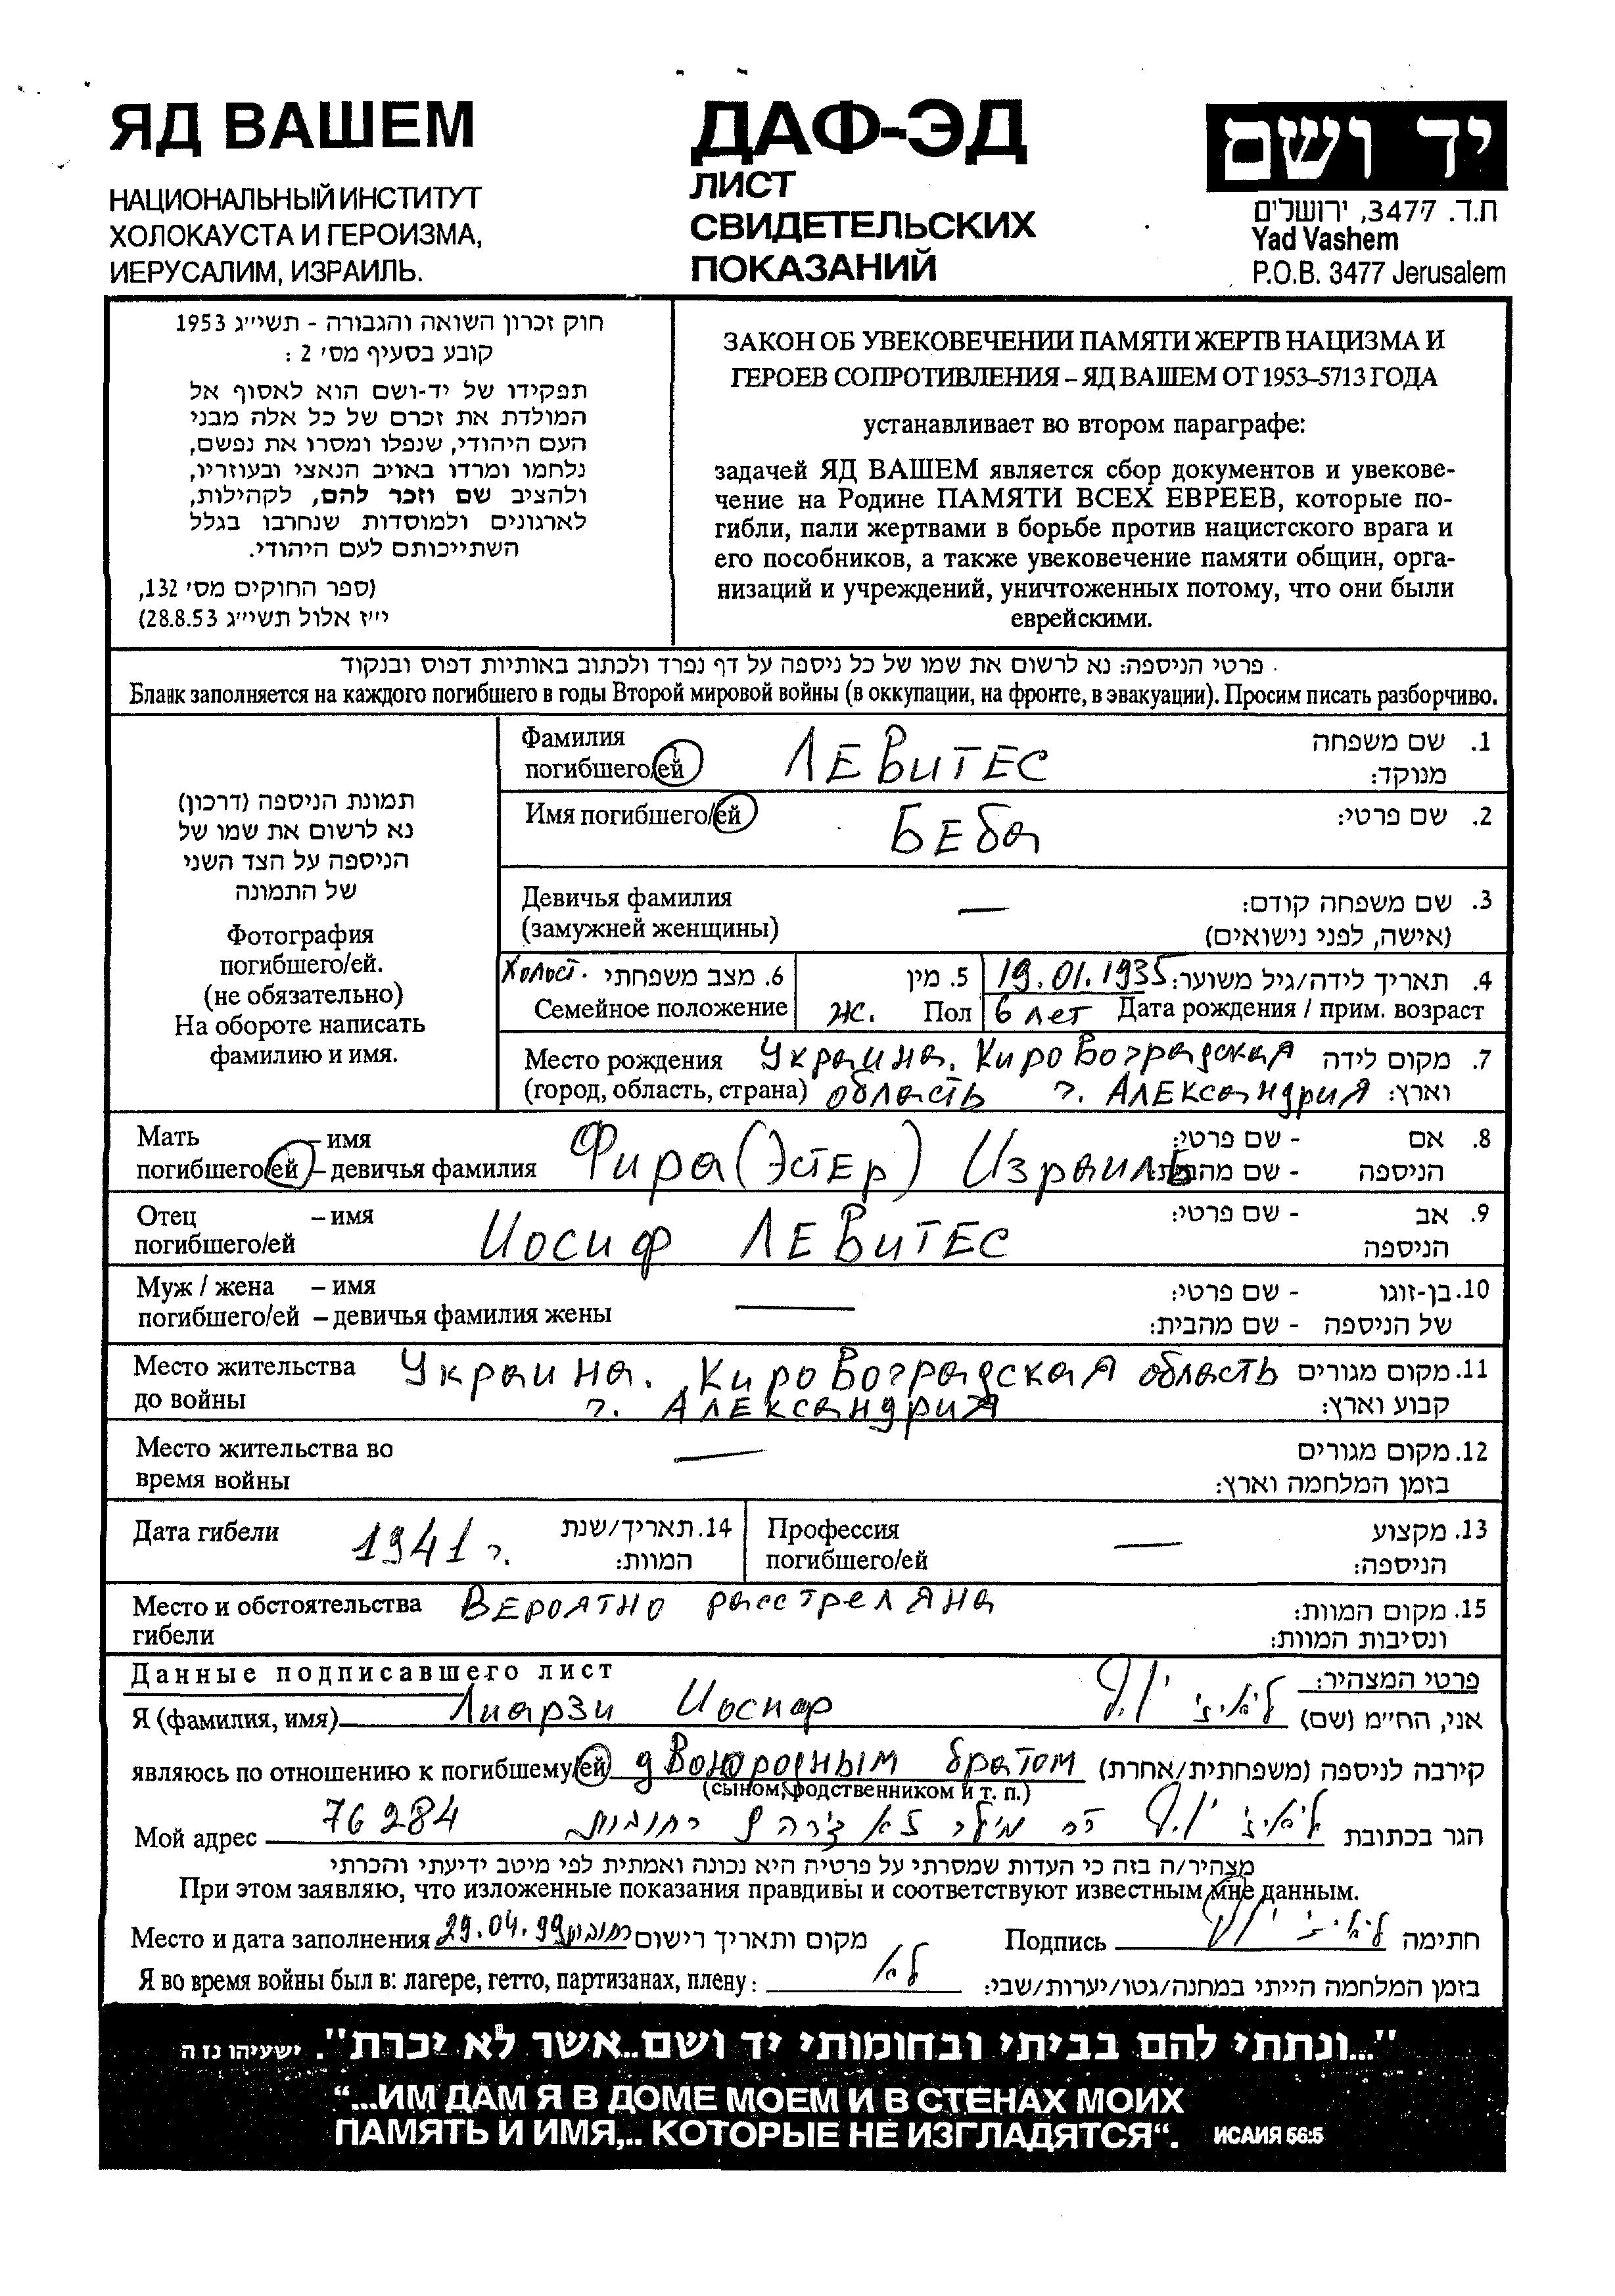 ЯД ВАШЕМ
НАЦИОНАЛЬНЫЙ ИНСТИТУТ
ХОЛОКАУСТА И ГЕРОИЗМА,
ИЕРУСАЛИМ, ИЗРАИЛЬ.
ДАФ-ЭД
ЛИСТ
СВИДЕТЕЛЬСКИХ
ПОКАЗАНИЙ
יד ושם
ת.ד. 3477, ירושלים
Yad Vashem
P.O.B. 3477 Jerusalem
חוק זכרון השואה והגבורה - תשי״ג 1953
קובע בסעיף מס׳ 2 :
תפקידו של יד-ושם הוא לאסוף אל
המולדת את זכרם של כל אלה מבני
העם היהודי, שנפלו ומסרו את נפשם,
נלחמו ומרדו באויב הנאצי ובעוזריו,
ולהציב שם וזכר להם, לקהילות,
לארגונים ולמוסדות שנחרבו בגלל
השתייכותם לעם היהודי.
(ספר החוקים מס׳ 132,
י״ז אלול תשי״ג 28.8.53)
ЗАКОН ОБ УВЕКОВЕЧЕНИИ ПАМЯТИ ЖЕРТВ НАЦИЗМА И
ГЕРОЕВ СОПРОТИВЛЕНИЯ – ЯД ВАШЕМ ОТ 1953–5713 ГОДА
устанавливает во втором параграфе:
задачей ЯД ВАШЕМ является сбор документов и увекове-
чение на Родине ПАМЯТИ ВСЕХ ЕВРЕЕВ, которые по-
гибли, пали жертвами в борьбе против нацистского врага и
его пособников, а также увековечение памяти общин, орга-
низаций и учреждений, уничтоженных потому, что они были
еврейскими.
פרטי הניספה: נא לרשום את שמו של כל ניספה על דף נפרד ולכתוב באותיות דפוס ובנקוד
Бланк заполняется на каждого погибшего в годы Второй мировой войны (в оккупации, на фронте, в эвакуации). Просим писать разборчиво.
תמונת הניספה (דרכון)
נא לרשום את שמו של
הניספה על הצד השני
של התמונה
Фотография
погибшего/ей.
(не обязательно)
На обороте написать
фамилию и имя.
Фамилия 1. שם משפחה
погибшего/ей ЛЕВИТЕС מנוקד:
Имя погибшего/ей БЕБА 2. שם פרטי:
Девичья фамилия — 3. שם משפחה קודם:
(замужней женщины) (אישה, לפני נישואים)
Холост. 6. מצב משפחתי 5. מין 19.01.1935 4. תאריך לידה/גיל משוער:
Семейное положение Ж. Пол 6 лет Дата рождения / прим. возраст
Место рождения Украина. Кировоградская 7. מקום לידה
(город, область, страна) область г. Александрия וארץ:
Мать – имя - שם פרטי: 8. אם
погибшего/ей – девичья фамилия Фира (Эстер) Израиль - שם מהבית: הניספה
Отец – имя - שם פרטי: 9. אב
погибшего/ей Иосиф ЛЕВИТЕС הניספה
Муж / жена – имя - שם פרטי: 10. בן-זוגו
погибшего/ей – девичья фамилия жены — - שם מהבית: של הניספה
Место жительства Украина. Кировоградская область 11. מקום מגורים
до войны г. Александрия קבוע וארץ:
Место жительства во — 12. מקום מגורים
время войны בזמן המלחמה וארץ:
Дата гибели 1941 г. 14. תאריך/שנת Профессия — 13. מקצוע
המוות: погибшего/ей הניספה:
Место и обстоятельства Вероятно расстреляна 15. מקום המוות:
гибели ונסיבות המוות:
Данные подписавшего лист פרטי המצהיר:
Я (фамилия, имя) Лиарзи Иосиф אני, הח״מ (שם)
являюсь по отношению к погибшему/ей двоюродным братом קירבה לניספה (משפחתית/אחרת)
(сыном, родственником и т. п.)
Мой адрес 76284 רחובות הגר בכתובת
מצהיר/ה בזה כי העדות שמסרתי על פרטיה היא נכונה ואמתית לפי מיטב ידיעתי והכרתי
При этом заявляю, что изложенные показания правдивы и соответствуют известным мне данным.
Место и дата заполнения 29.04.99 רחובות מקום ותאריך רישום Подпись חתימה
Я во время войны был в: лагере, гетто, партизанах, плену: לא בזמן המלחמה הייתי במחנה/גטו/יערות/שבי:
"...ונתתי להם בביתי ובחומותי יד ושם..אשר לא יכרת". ישעיהו נז ה
“...ИМ ДАМ Я В ДОМЕ МОЕМ И В СТЕНАХ МОИХ
ПАМЯТЬ И ИМЯ,.. КОТОРЫЕ НЕ ИЗГЛАДЯТСЯ“. ИСАИЯ 56:5